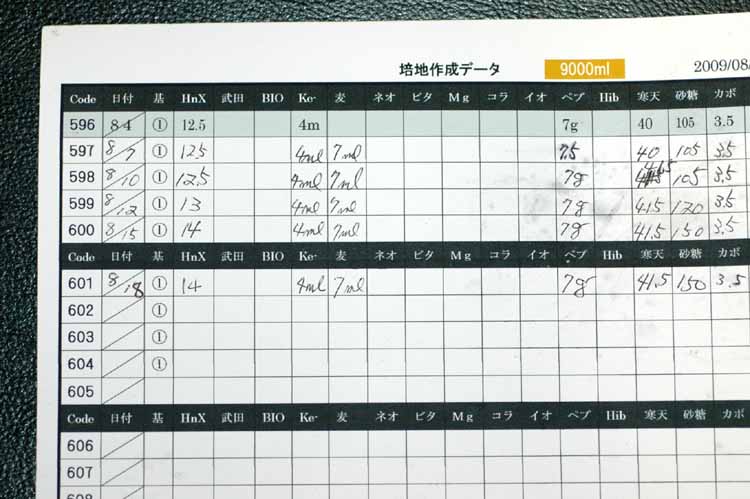 培地作成データ 9000ml 2009/08
Code 日付 基 HnX 武田 BIO Ke- 麦 ネオ ビタ Mg コラ イオ ペプ Hib 寒天 砂糖 カボ
596 8/4 ① 12.5 4m 7g 40 105 3.5
597 8/7 ① 12.5 4ml 7ml 7.5 40 105 3.5
598 8/10 ① 12.5 4ml 7ml 7g 41.5 105 3.5
599 8/12 ① 13 4ml 7ml 7g 41.5 120 3.5
600 8/15 ① 14 4ml 7ml 7g 41.5 150 3.5
Code 日付 基 HnX 武田 BIO Ke- 麦 ネオ ビタ Mg コラ イオ ペプ Hib 寒天 砂糖 カボ
601 8/18 ① 14 4ml 7ml 7g 41.5 150 3.5
602 ①
603 ①
604 ①
605
Code 日付 基 HnX 武田 BIO Ke- 麦 ネオ ビタ Mg コラ イオ ペプ Hib 寒天 砂糖 カボ
606
607
608